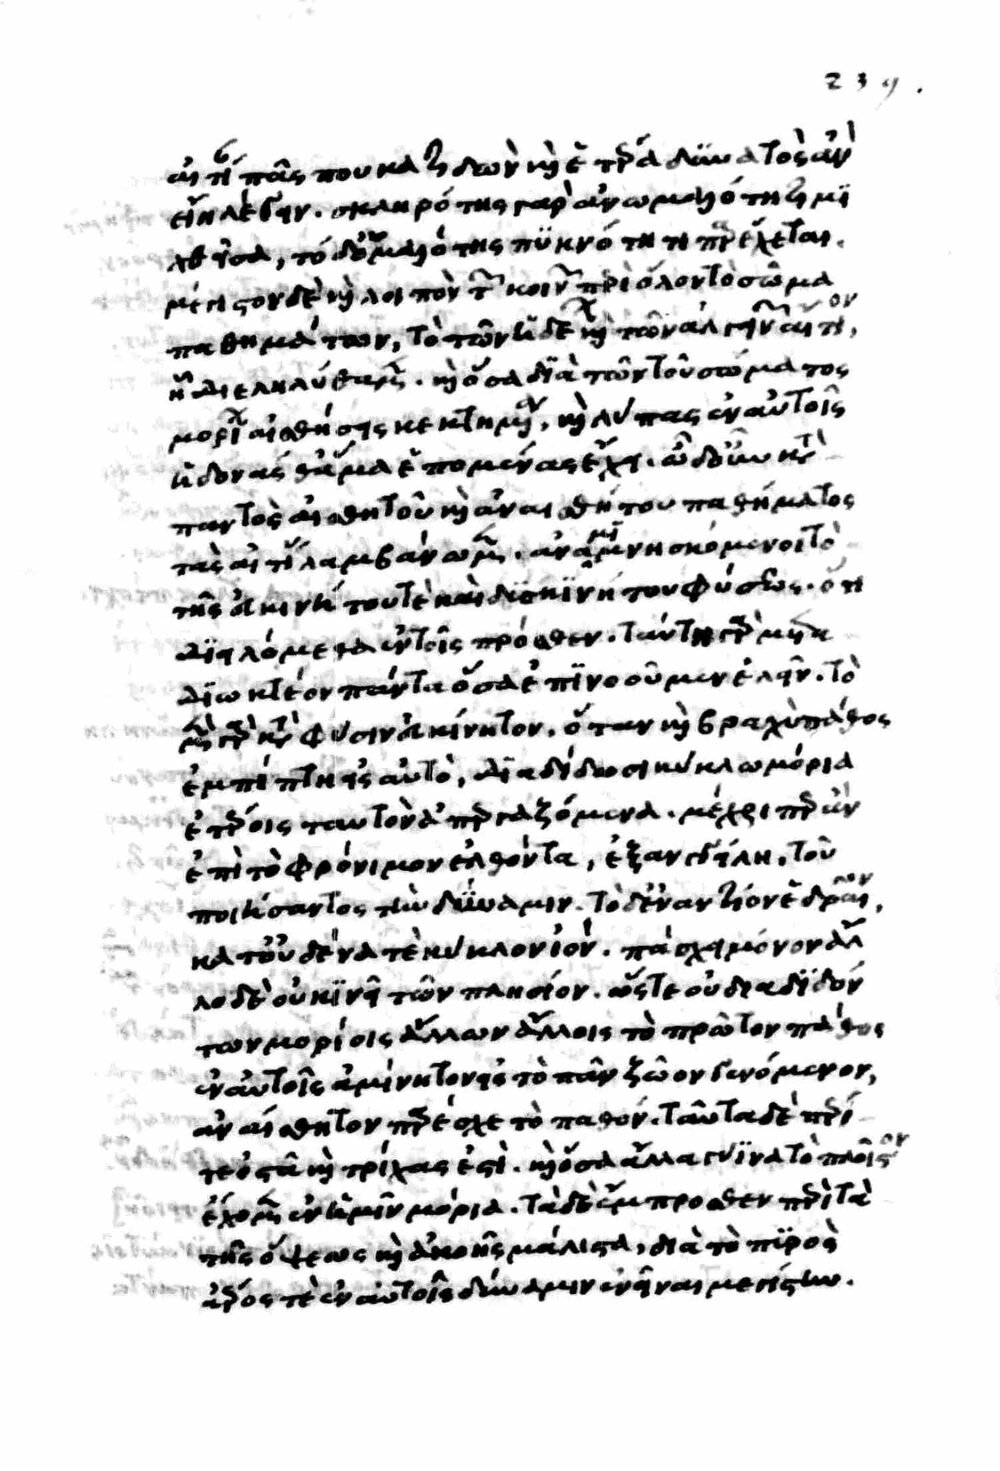 239.
αἰτί πᾶς που κατιδὼν καὶ ἑτέρα δυνατὸς ἂν
εἴη λέγειν. σκληρότης γὰρ ἀνωμαλότητι μι
χθεῖσα, τὸ δ' ὁμαλότης πυκνότητι παρέχεται.
μέγιστον δὲ καὶ λοιπὸν τῶν κοινῶν περὶ ὅλον τὸ σῶμα
παθημάτων, τὸ τῶν ἡδέων καὶ τῶν ἀλγεινῶν αἴτιον,
ἐν οἷς διεληλύθαμεν. καὶ ὅσα διὰ τῶν τοῦ σώματος
μορίων αἰσθήσεις κεκτημένα, καὶ λύπας ἐν αὑτοῖς
ἡδονάς θ' ἅμα ἑπομένας ἔχει. ὧδ' οὖν κατὰ
παντὸς αἰσθητοῦ καὶ ἀναισθήτου παθήματος
τὰς αἰτίας λαμβάνωμεν. ἀναμιμνησκόμενοι τὸ
τῆς ἀκινήτου τε καὶ δυσκινήτου φύσεως. ὅτι
διειλόμεθα ἐν τοῖς πρόσθεν. ταύτῃ γὰρ
διωκτέον πάντα ὅσα ἐπινοοῦμεν ἑλεῖν. τὸ
μὲν γὰρ κατὰ φύσιν ἀκίνητον. ὅταν καὶ βραχὺ πάθος
ἐμπίπτῃ εἰς αὐτὸ, διαδίδωσι κύκλῳ μόρια
ἑτέροις ταυτὸν ἀπεργαζόμενα. μέχρι περ ἂν
ἐπὶ τὸ φρόνιμον ἐλθόντα, ἐξαγγείλῃ, τοῦ
ποιήσαντος τὴν δύναμιν. τὸ δ' ἐναντίον ἑδραῖον,
κατ' οὐδένα τε κύκλον ἰόν. πάσχει μόνον ἄλ
λο δὲ οὐ κινεῖ τῶν πλησίον. ὥστε οὐ διαδιδόν
των μορίοις ἄλλων ἄλλοις τὸ πρῶτον πάθος
ἐν αὐτοῖς ἀκίνητον εἰς τὸ πᾶν ζῷον γενόμενον,
ἀναίσθητον παρέσχε τὸ παθόν. ταῦτα δὲ περί
τε ὀστᾶ καὶ τρίχας ἐστὶ. καὶ ὅσα ἄλλα γήϊνα τὸ πλεῖστον
ἔχομεν ἐν ἡμῖν μόρια. τὰ δὲ ἔμπροσθεν περὶ τὰ
τῆς ὄψεως καὶ ἀκοῆς μάλιστα, διὰ τὸ πυρὸς
ἀέρος τὲ ἐν αὐτοῖς δύναμιν ἐνεῖναι μεγίστην.